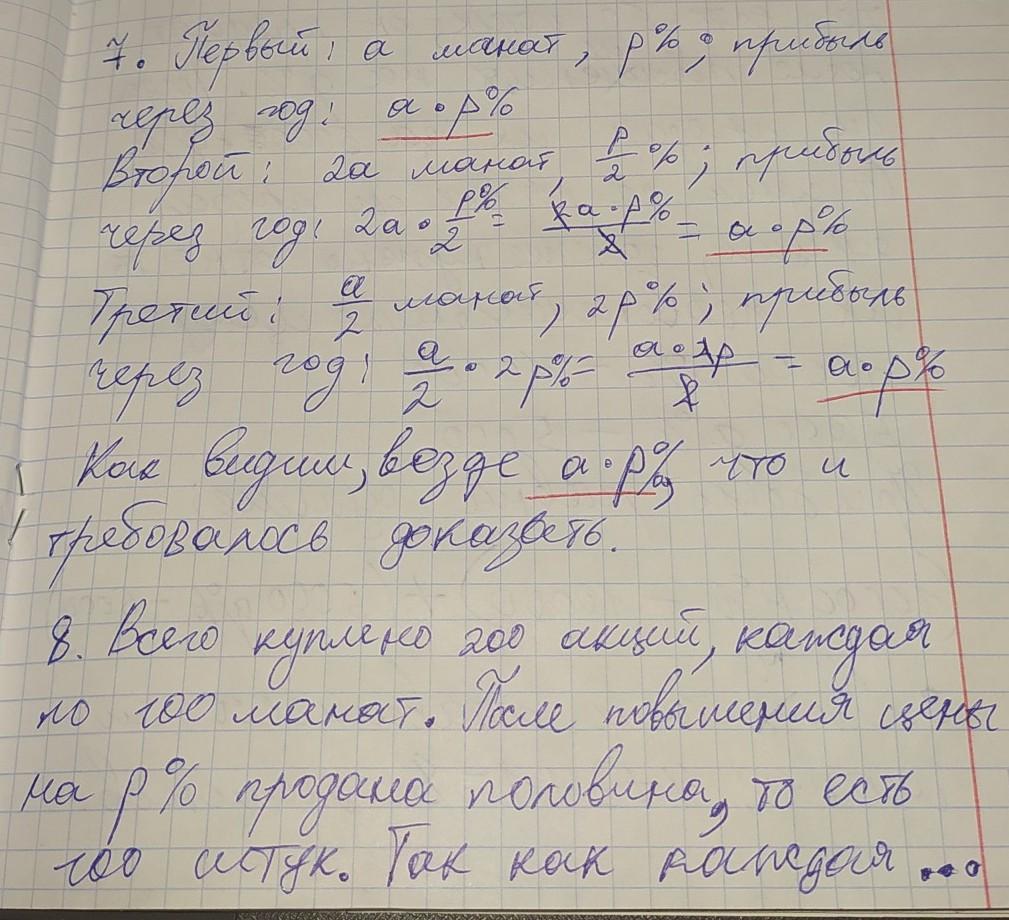 7. Первый: a манат, p%; прибыль
через год: a·p%
Второй: 2a манат, p/2 %; прибыль
через год: 2a · p%/2 = 2a·p%/2 = a·p%
Третий: a/2 манат, 2p%; прибыль
через год: a/2 · 2p% = a·2p/2 = a·p%
Как видим, везде a·p%, что и
требовалось доказать.
8. Всего куплено 200 акций, каждая
по 100 манат. После повышения цены
на p% продана половина, то есть
100 штук. Так как каждая ...